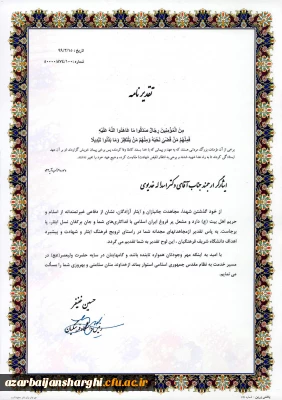 تاریخ: ۹۹/۲/۱۵
تقدیرنامه
مِنَ الْمُؤْمِنِینَ رِجَالٌ صَدَقُوا مَا عَاهَدُوا اللَّهَ عَلَیْهِ
فَمِنْهُمْ مَنْ قَضَى نَحْبَهُ وَمِنْهُمْ مَنْ یَنْتَظِرُ وَمَا بَدَّلُوا تَبْدِیلًا
ایثارگر ارجمند جناب آقای دکتر اسداله خدیوی
از خود گذشتن شهدا، مجاهدت جانبازان و ایثار آزادگان، نشان از دفاعی غیرتمندانه از اسلام و
حریم اهل بیت (ع) دارد و مشعل پر فروغ ایران اسلامی با فداکاری‌های شما و جان بر کفان نسل ایثار، پا
برجاست. به پاس تقدیر از مجاهدتهای مجدانه شما در راستای ترویج فرهنگ ایثار و شهادت و پیشبرد
اهداف دانشگاه شریف فرهنگیان، این لوح تقدیر به شما تقدیم می گردد.
با امید به اینکه مهر وجودتان همواره تابنده باشد و گامهایتان در سایه حضرت ولیعصر (عج) در
مسیر خدمت به نظام مقدس جمهوری اسلامی استوار بماند از خداوند منان سلامتی و بهروزی شما را مسألت
می نمایم.
حسین خنیفر
azarbaijansharghi.cfu.ac.ir